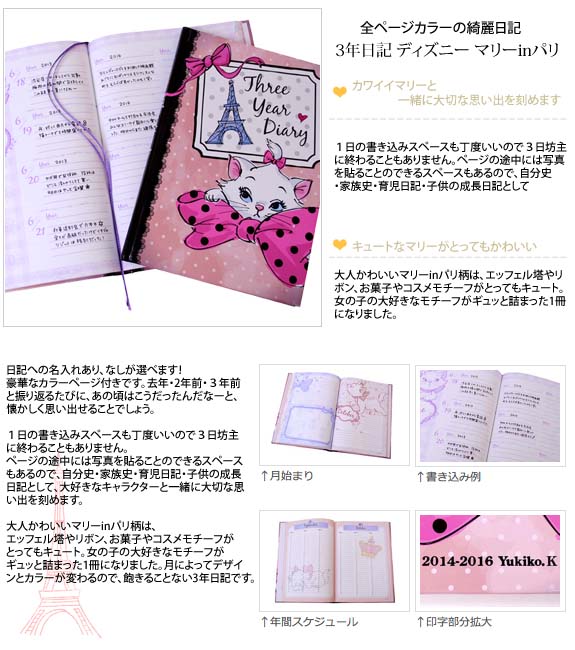 全ページカラーの綺麗日記
3年日記 ディズニー マリーinパリ
カワイイマリーと
一緒に大切な思い出を刻めます
１日の書き込みスペースも丁度いいので３日坊主
に終わることもありません。ページの途中には写真
を貼ることのできるスペースもあるので、自分史
・家族史・育児日記・子供の成長日記として
キュートなマリーがとってもかわいい
大人かわいいマリーinパリ柄は、エッフェル塔やリ
ボン、お菓子やコスメモチーフがとってもキュート。
女の子の大好きなモチーフがギュッと詰まった1冊
になりました。
Three
Year
Diary
日記への名入れあり、なしが選べます!
豪華なカラーページ付きです。去年・2年前・３年前
と振り返るたびに、あの頃はこうだったんだなーと、
懐かしく思い出せることでしょう。
１日の書き込みスペースも丁度いいので３日坊主
に終わることもありません。
ページの途中には写真を貼ることのできるスペース
もあるので、自分史・家族史・育児日記・子供の成長
日記として、大好きなキャラクターと一緒に大切な思
い出を刻めます。
大人かわいいマリーinパリ柄は、
エッフェル塔やリボン、お菓子やコスメモチーフが
とってもキュート。女の子の大好きなモチーフが
ギュッと詰まった1冊になりました。月によってデザイ
ンとカラーが変わるので、飽きることない3年日記です。
↑月始まり
↑書き込み例
2014-2016 Yukiko.K
↑年間スケジュール
↑印字部分拡大